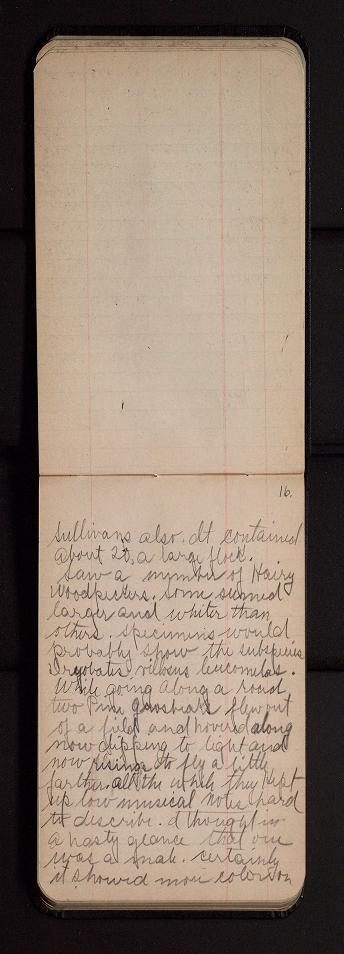 16.
Sullivans also. It contained
about 20, a large flock.
Saw a number of Hairy
Woodpeckers. Some seemed
larger and whiter than
others. Specimens would
probably show the subspecies
Dryobates villosus leucomelas.
While going along a road,
two Pine Grosbeaks flew out
of a field and hovered along
now dipping to light and
now rising to fly a little
farther. All the while they kept
up low musical notes hard
to describe. I thought in
a hasty glance that one
was a male. Certainly
it showed more color on